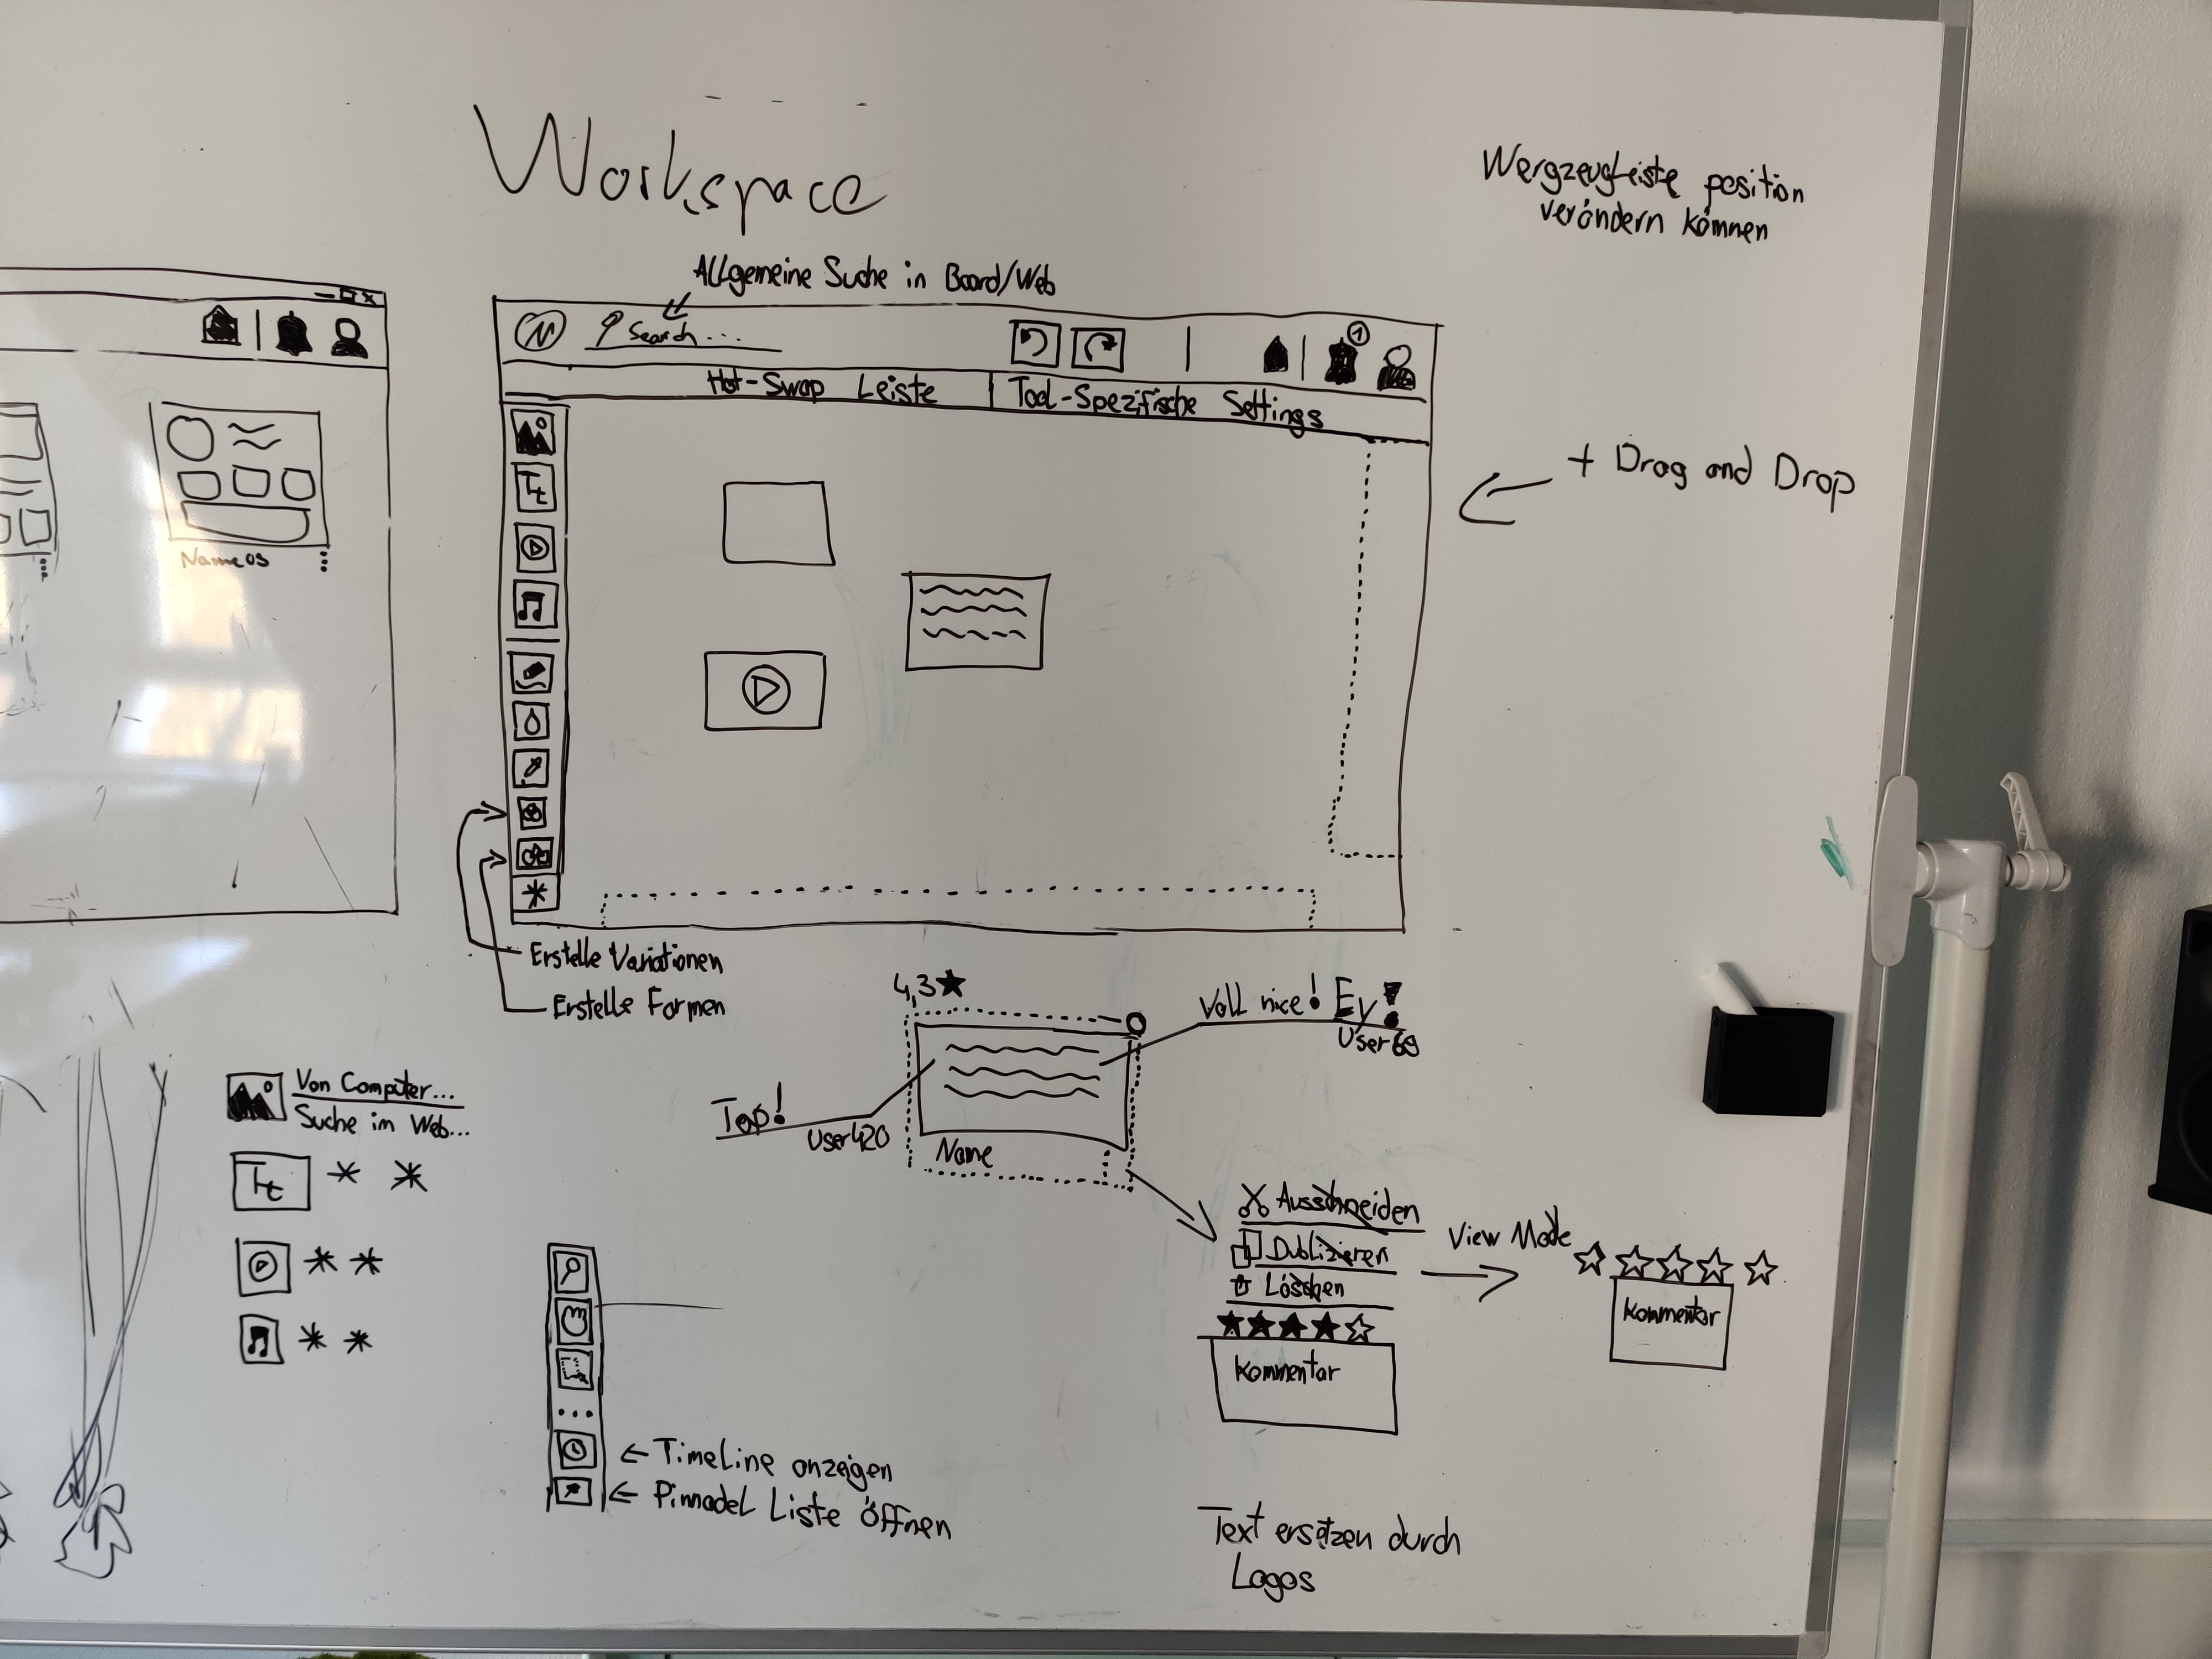 Workspace
Wergzeugleiste position
verändern können
Allgemeine Suche in Board/Web
N
Search...
1
Hot-Swap Leiste
Tool-Spezifische Settings
Tt
+ Drag and Drop
Name 03
Erstelle Variationen
Erstelle Formen
4,3★
Voll nice! Ey!
User69
Top!
User420
Name
Von Computer...
Suche im Web...
Tt
Ausschneiden
Dublizieren
Löschen
Kommentar
View Mode
Kommentar
TimeLine anzeigen
Pinnadel Liste öffnen
Text ersetzen durch
Logos